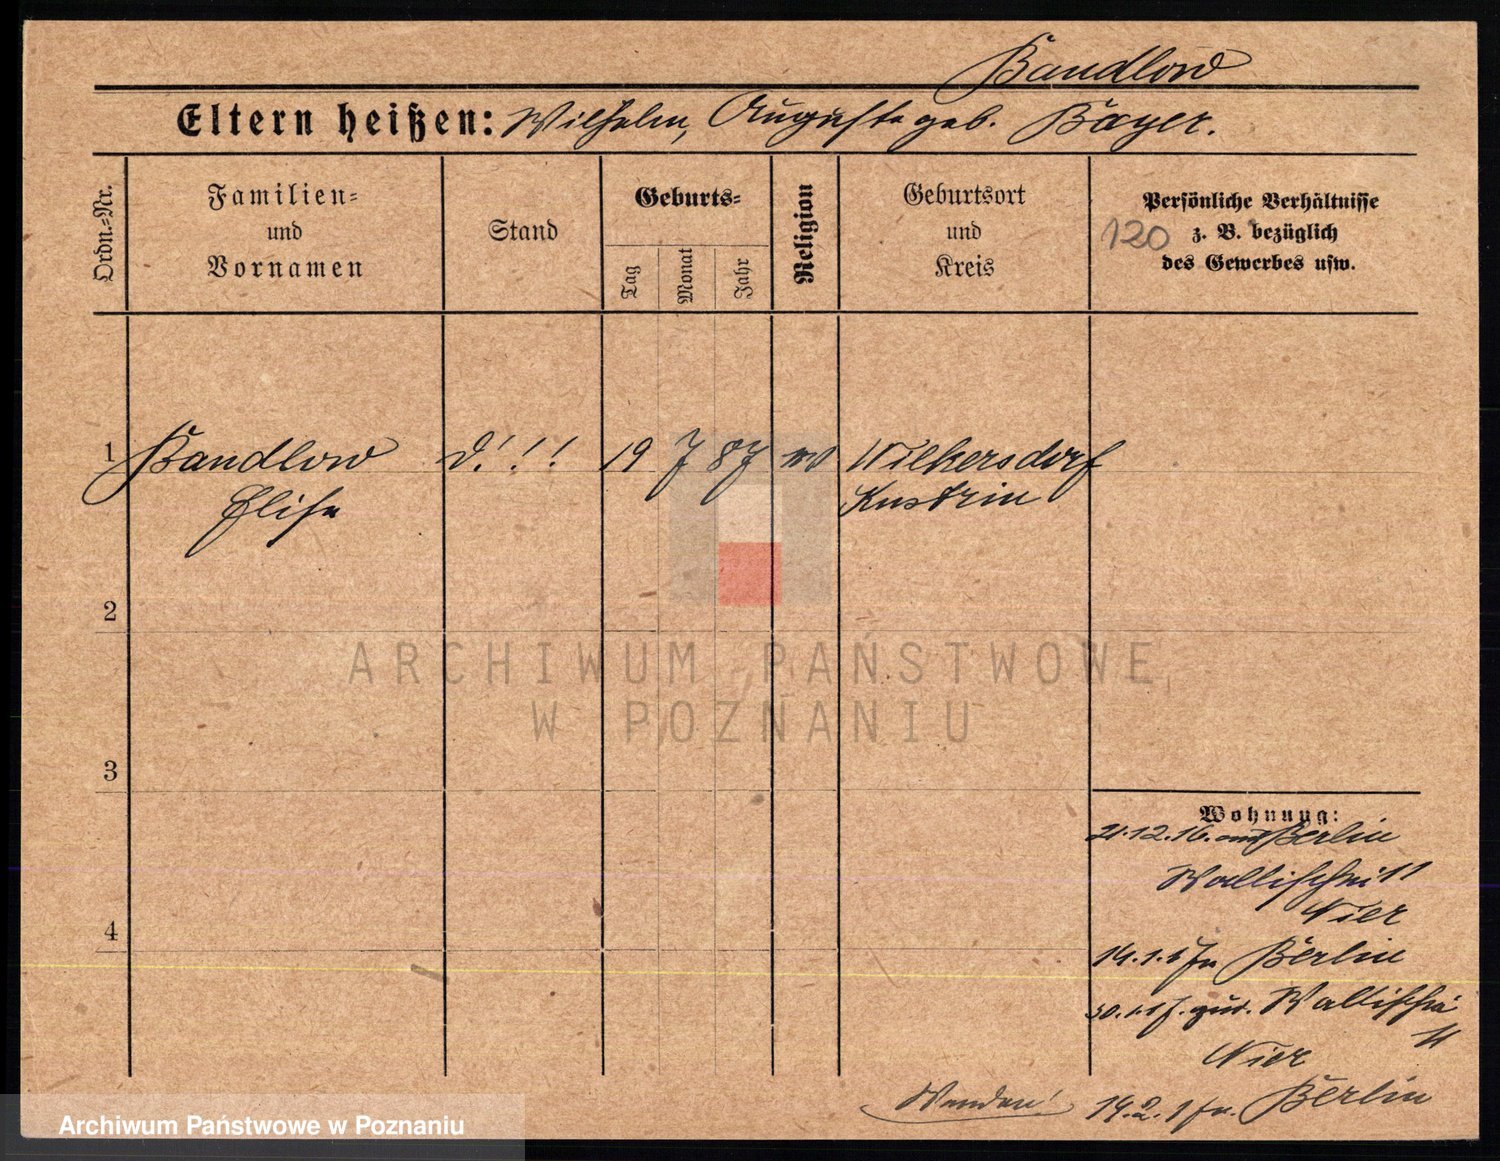 Bandlow
Eltern heißen: Wilhelm, Auguste geb. Bayer.
Ordn.-Nr.
Familien-
und
Vornamen
Stand
Geburts-
Tag
Monat
Jahr
Religion
Geburtsort
und
Kreis
Persönliche Verhältnisse
120 z. B. bezüglich
des Gewerbes usw.
1 Bandlow 19 7 87 Wilkersdorf
Elise Küstrin
2
3
4
Wohnung:
21.12.16. aus Berlin
Wallischei 11
Nier
14.1.17 Berlin
30.1.17. zur. Wallischei
11
Nier
14.2.17 Berlin
Wenden!
ARCHIWUM PAŃSTWOWE
W POZNANIU
Archiwum Państwowe w Poznaniu